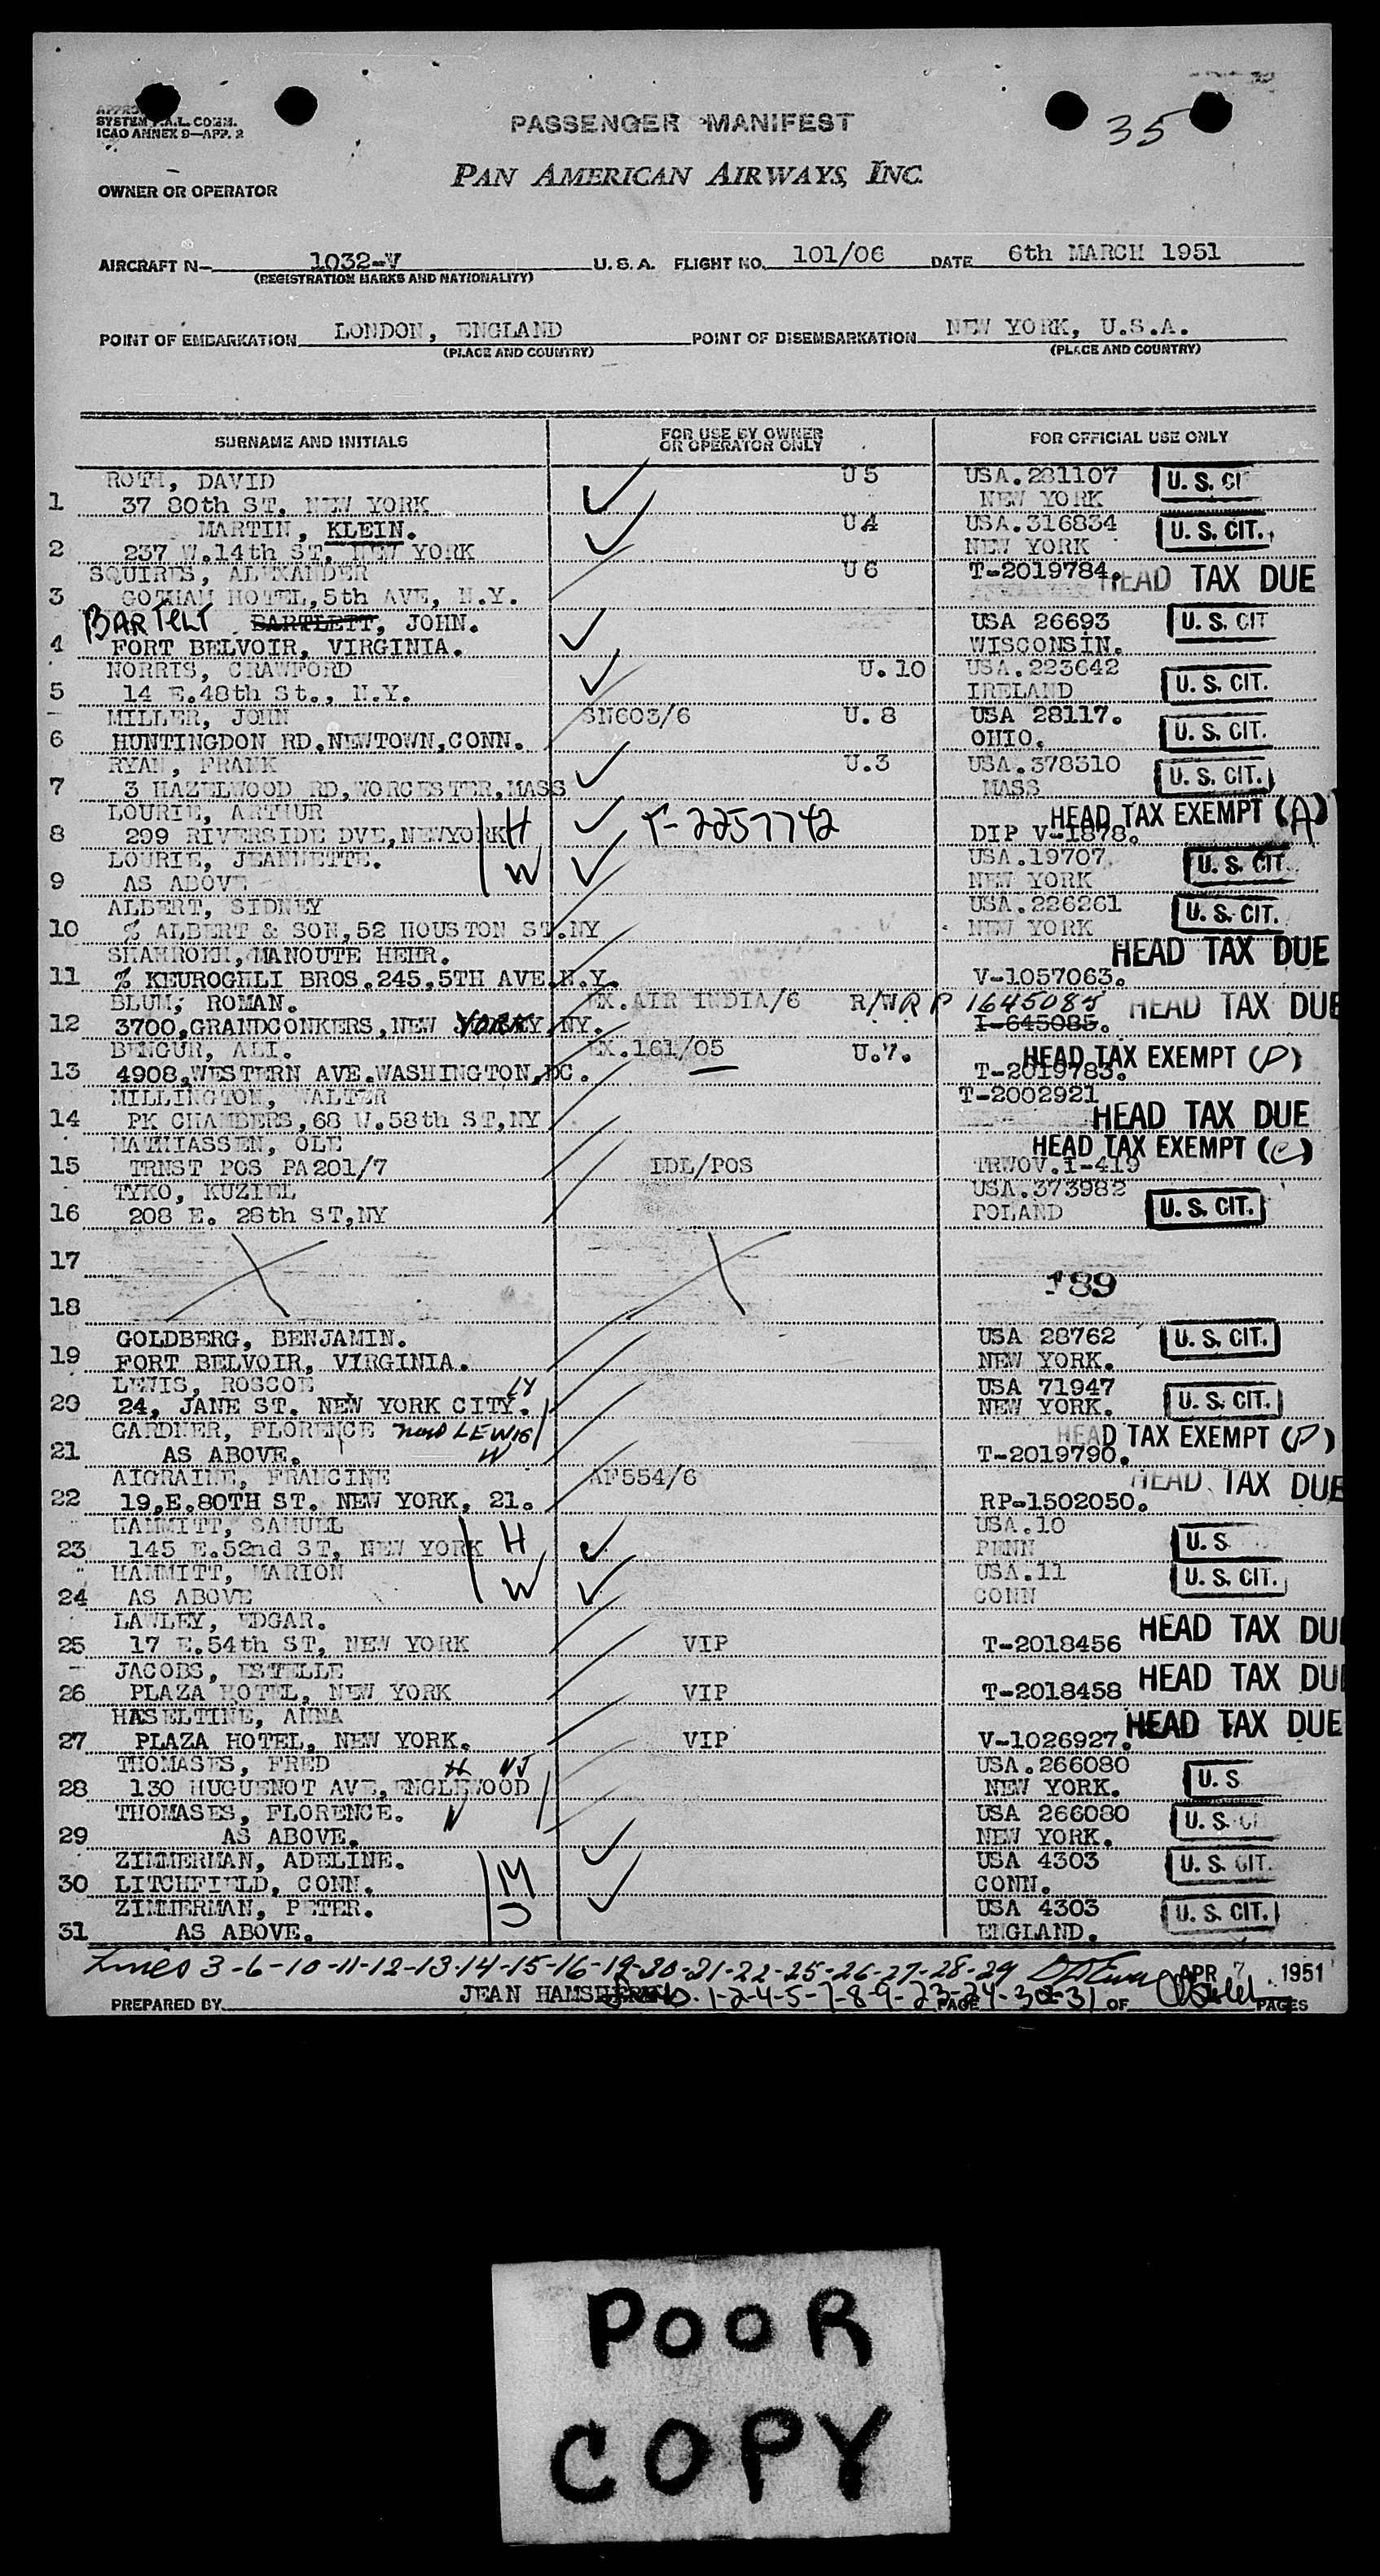 35
SYSTEM P.A.L. COMM.
ICAO ANNEX 9—APP. 2
PASSENGER MANIFEST
PAN AMERICAN AIRWAYS, INC.
OWNER OR OPERATOR
AIRCRAFT N— 1032-V U.S.A. FLIGHT NO. 101/06 DATE 6th MARCH 1951
(REGISTRATION MARKS AND NATIONALITY)
POINT OF EMBARKATION LONDON, ENGLAND POINT OF DISEMBARKATION NEW YORK, U.S.A.
(PLACE AND COUNTRY) (PLACE AND COUNTRY)
SURNAME AND INITIALS FOR USE BY OWNER OR OPERATOR ONLY FOR OFFICIAL USE ONLY
ROTH, DAVID U5 USA.281107 U. S. CI
1 37 80th ST. NEW YORK NEW YORK
MARTIN, KLEIN. U4 USA.316834 U. S. CIT.
2 237 W.14th ST, NEW YORK NEW YORK
SQUIRES, ALEXANDER U6 T-2019784. HEAD TAX DUE
3 GOTHAM HOTEL,5th AVE, N.Y.
BARTELT BARTLETT, JOHN. USA 26693 U. S. CIT
4 FORT BELVOIR, VIRGINIA. WISCONSIN.
NORRIS, CRAWFORD U.10 USA.223642 U. S. CIT.
5 14 E.48th St., N.Y. IRELAND
MILLER, JOHN SN603/6 U.8 USA 28117. U. S. CIT.
6 HUNTINGDON RD,NEWTOWN,CONN. OHIO.
RYAN, FRANK U.3 USA.378310 U. S. CIT.
7 3 HAZELWOOD RD,WORCESTER,MASS MASS
LOURIE, ARTHUR HEAD TAX EXEMPT (A)
8 299 RIVERSIDE DVE,NEWYORK H T-2257742 DIP V-1878.
LOURIE, JEANNETTE. W USA.19707 U. S. CIT.
9 AS ABOVE NEW YORK
ALBERT, SIDNEY USA.226261 U. S. CIT.
10 % ALBERT & SON,52 HOUSTON ST.NY NEW YORK
SHAHROKH, MANOUTE HEHR. HEAD TAX DUE
11 % KEUROGHLI BROS.245,5TH AVE.N.Y. V-1057063.
BLUM, ROMAN. EX.AIR INDIA/6 R/W RP 1645085 HEAD TAX DUE
12 3700,GRANDCONKERS,NEW YORK,NY. I-645085.
BENGUR, ALI. EX.161/05 U.7. HEAD TAX EXEMPT (P)
13 4908,WESTERN AVE.WASHINGTON,DC. T-2019783.
MILLINGTON, WALTER T-2002921
14 PK CHAMBERS,68 W.58th ST,NY HEAD TAX DUE
MATHIASSEN, OLE HEAD TAX EXEMPT (C)
15 TRNST POS PA201/7 IDL/POS TRWOV.I-419
TYKO, KUZIEL USA.373982
16 208 E. 28th ST,NY POLAND U. S. CIT.
17
189
18
GOLDBERG, BENJAMIN. USA 28762 U. S. CIT.
19 FORT BELVOIR, VIRGINIA. NEW YORK.
LEWIS, ROSCOE USA 71947
20 24, JANE ST. NEW YORK CITY. NEW YORK. U. S. CIT.
GARDNER, FLORENCE now LEWIS HEAD TAX EXEMPT (P)
21 AS ABOVE. W T-2019790.
AIGRAINE, FRANCINE AF554/6 HEAD TAX DUE
22 19,E.80TH ST. NEW YORK, 21. RP-1502050.
HAMMITT, SAMUEL USA.10
23 145 E.52nd ST, NEW YORK H PENN U. S
HAMMITT, MARION W USA.11 U. S. CIT.
24 AS ABOVE CONN
LAWLEY, EDGAR.
25 17 E.54th ST, NEW YORK VIP T-2018456 HEAD TAX DU
JACOBS, ESTELLE
26 PLAZA HOTEL, NEW YORK VIP T-2018458 HEAD TAX DU
HASELTINE, ANNA
27 PLAZA HOTEL, NEW YORK. VIP V-1026927. HEAD TAX DUE
THOMASES, FRED H NJ USA.266080
28 130 HUGUENOT AVE, ENGLEWOOD NEW YORK. U. S
THOMASES, FLORENCE. W USA 266080 U. S. CI
29 AS ABOVE. NEW YORK.
ZIMMERMAN, ADELINE. M USA 4303 U. S. CIT.
30 LITCHFIELD, CONN. CONN.
ZIMMERMAN, PETER. USA 4303 U. S. CIT.
31 AS ABOVE. ENGLAND.
Lines 3-6-10-11-12-13-14-15-16-19-20-21-22-25-26-27-28-29 APR 7 1951
PREPARED BY JEAN 1-2-4-5-7-8-9-23-24-30-31 PAGE OF PAGES
POOR
COPY